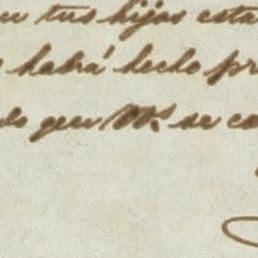 tus hijas esta
habrá hecho pr
que Ms se co